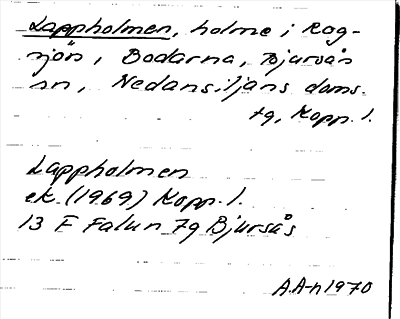 Lappholmen, holme i Rog-
sjön, Bodarna, Bjursås
sn, Nedansiljans doms.
tg, Kopp. l.
Lappholmen
ek. (1969) Kopp. l.
13 F Falun 7g Bjursås
A.A-n 1970